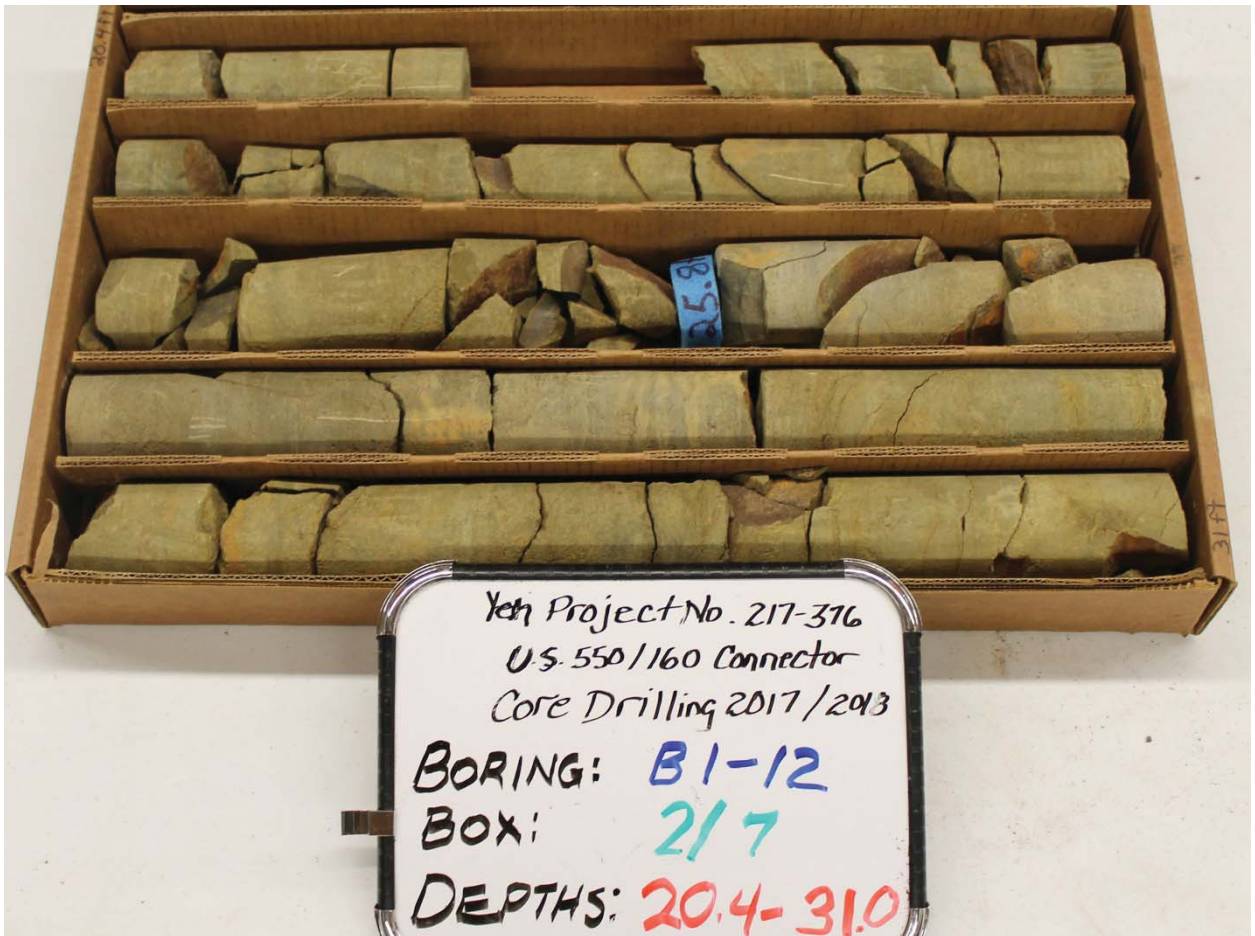 20.4ft
25.8ft
31 ft
Yeh Project No. 217-376
U.S. 550/160 Connector
Core Drilling 2017/2018
BORING: B1-12
BOX: 2/7
DEPTHS: 20.4-31.0